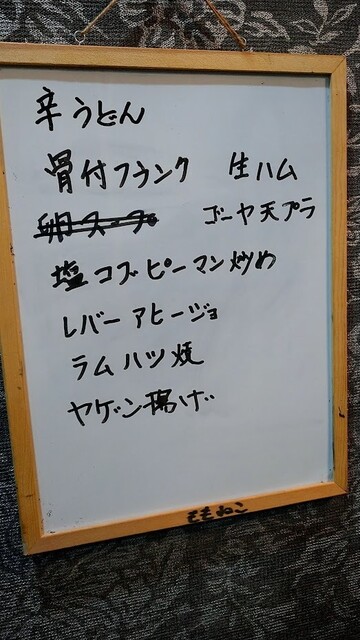 辛うどん
骨付フランク 生ハム
卵スープ ゴーヤ天プラ
塩コブピーマン炒め
レバーアヒージョ
ラムハツ焼
ヤゲン揚げ
ももねこ